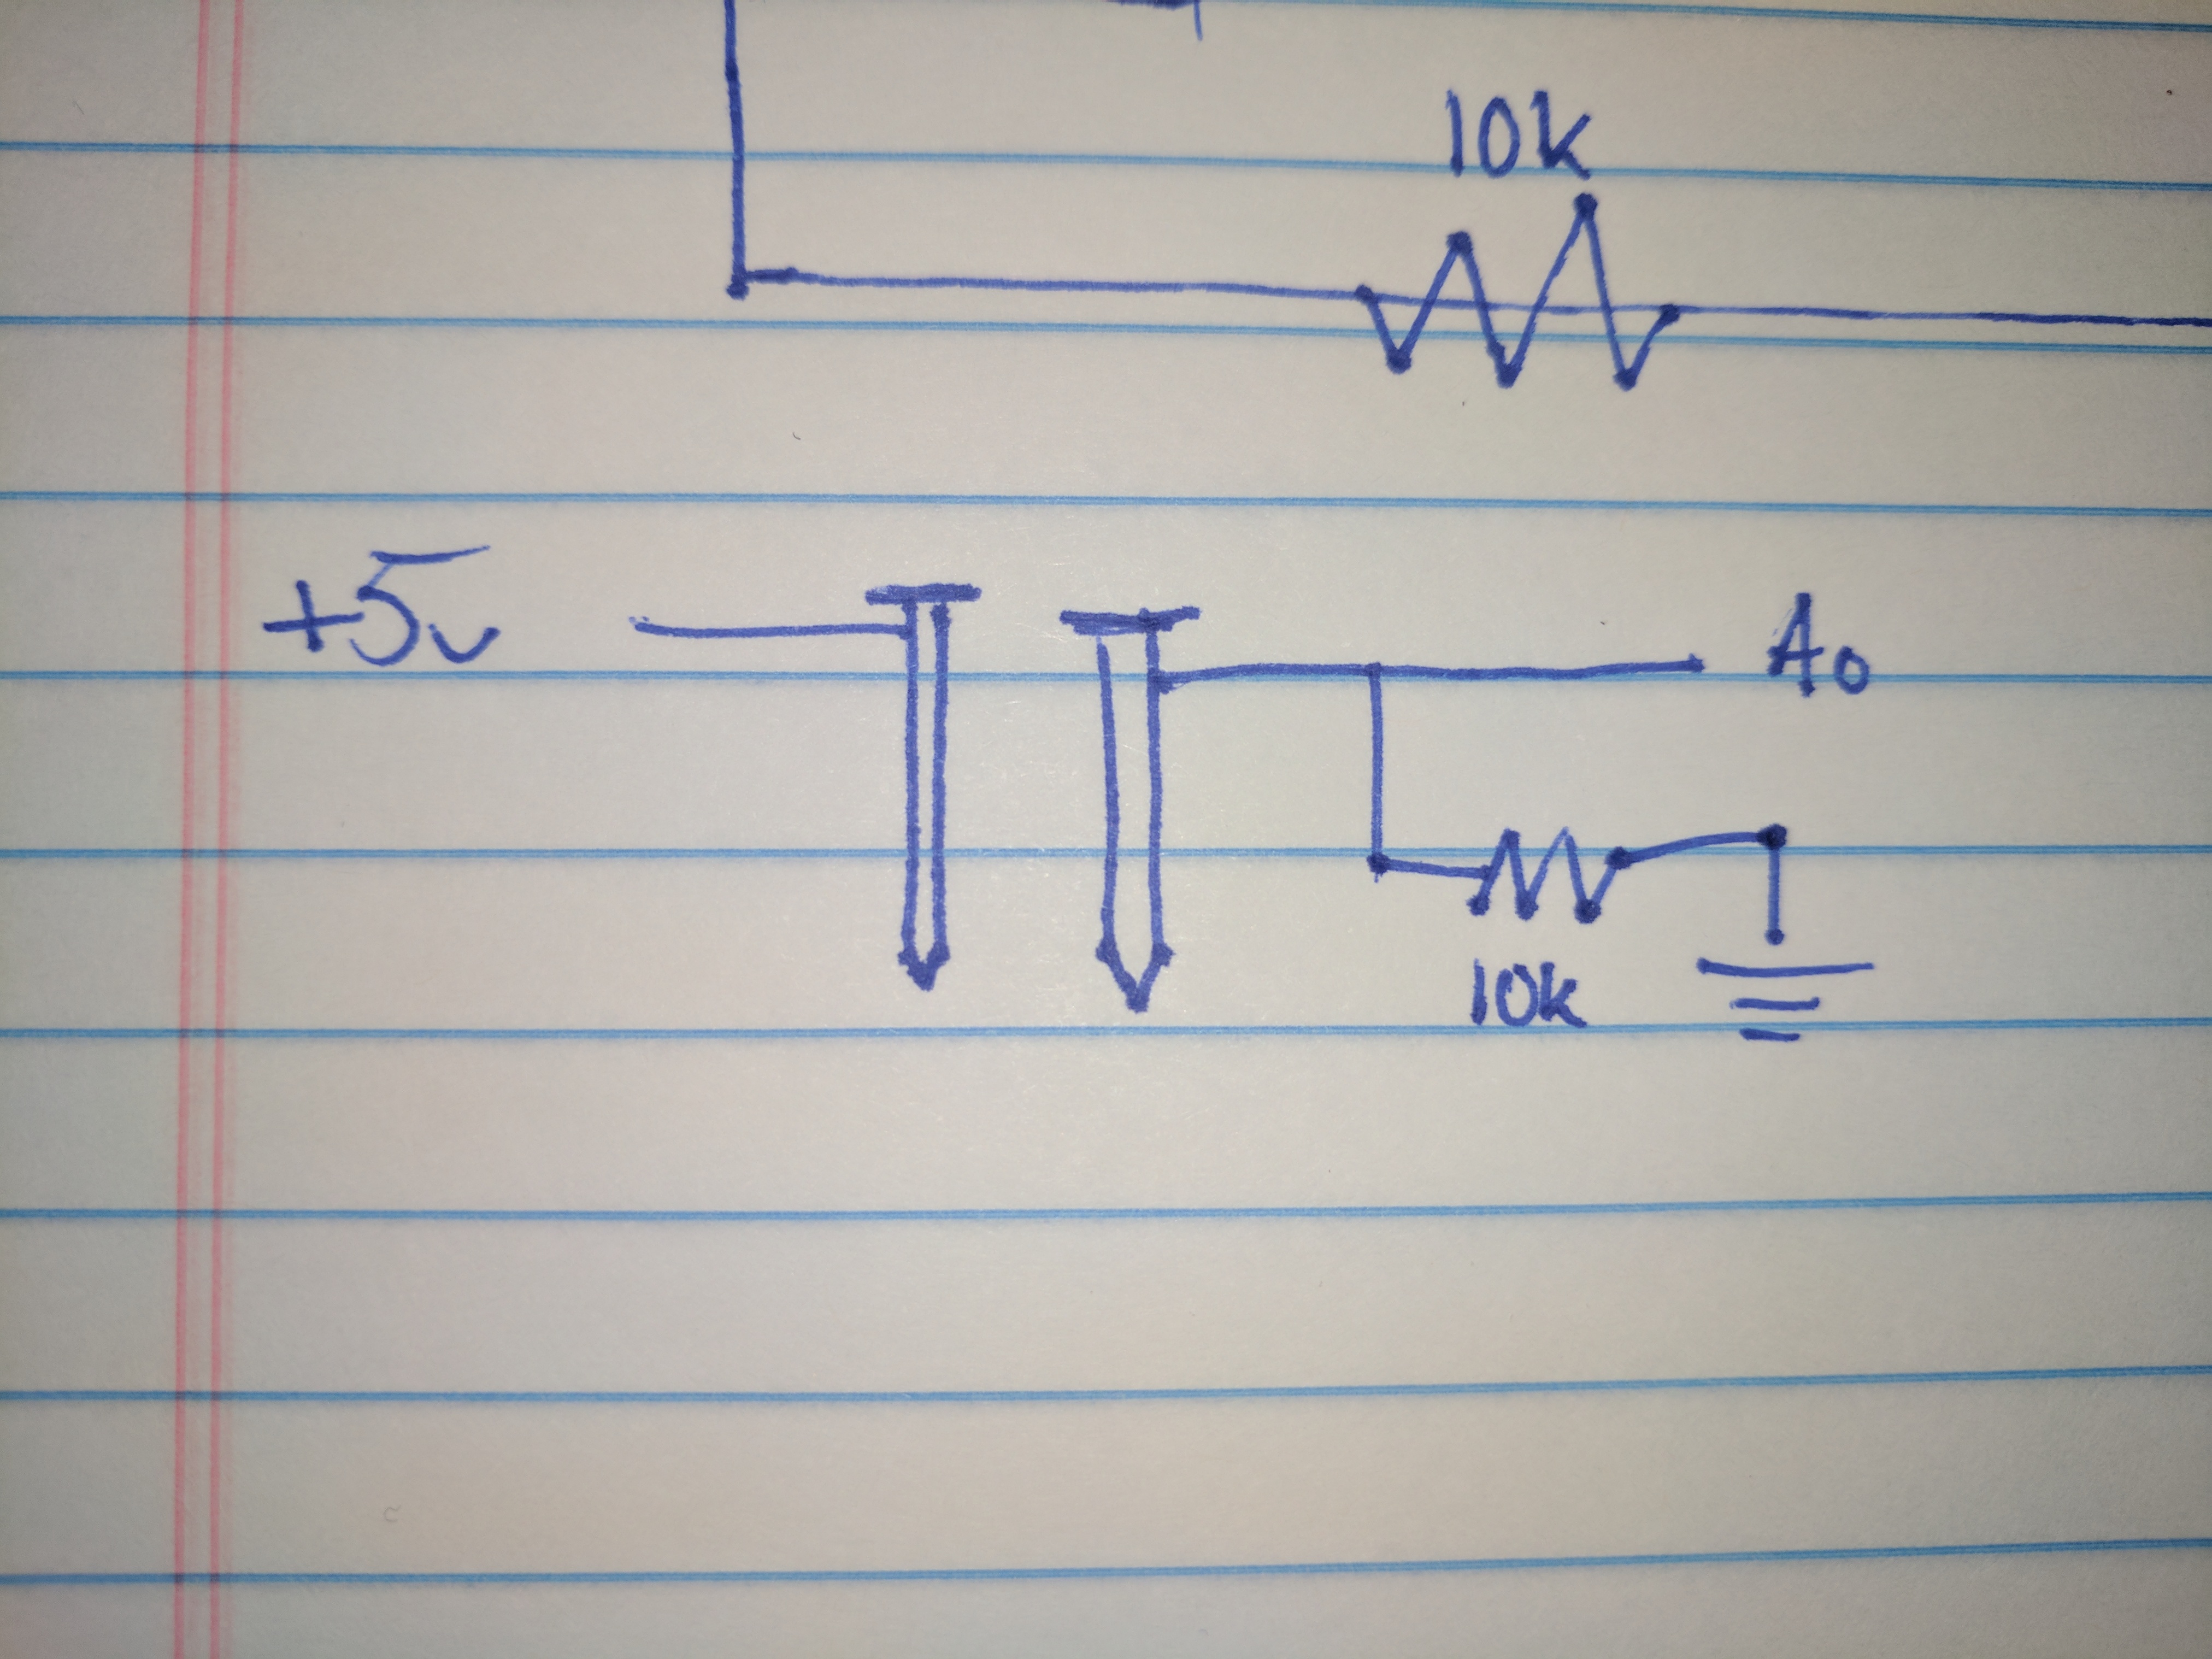 10k
+5v
A0
10k